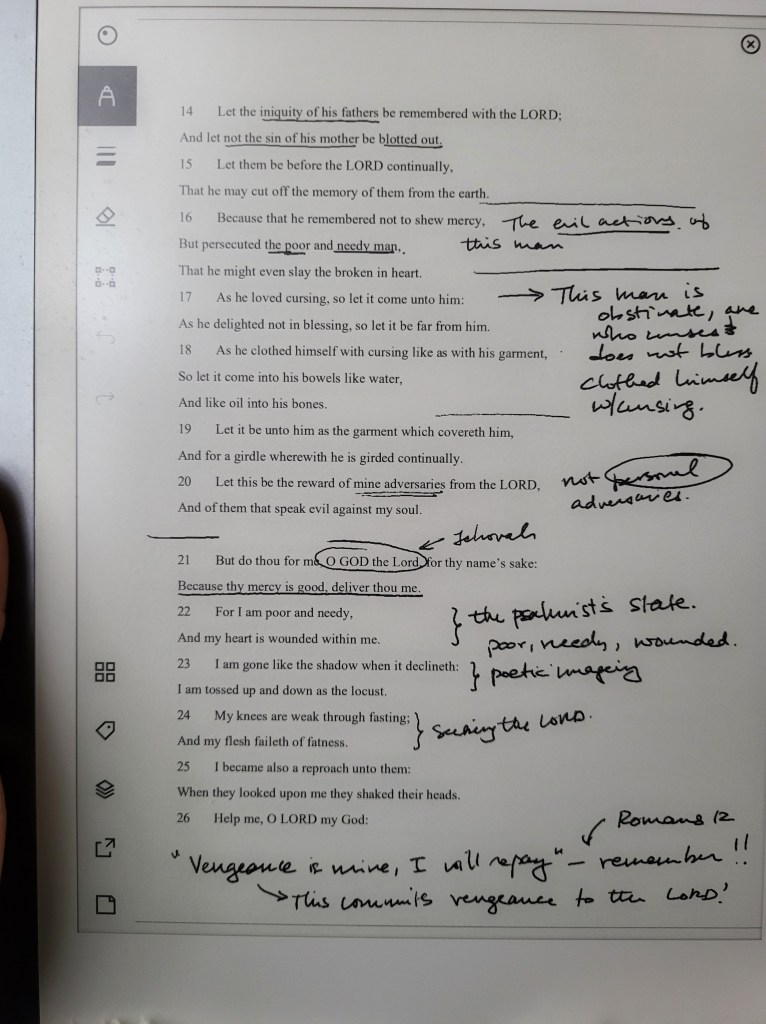 14 Let the iniquity of his fathers be remembered with the LORD;
And let not the sin of his mother be blotted out.
15 Let them be before the LORD continually,
That he may cut off the memory of them from the earth.
16 Because that he remembered not to shew mercy, The evil actions of
But persecuted the poor and needy man, this man
That he might even slay the broken in heart.
17 As he loved cursing, so let it come unto him: → This man is
obstinate, one
As he delighted not in blessing, so let it be far from him. who curses &
18 As he clothed himself with cursing like as with his garment, does not bless
So let it come into his bowels like water, clothed himself
And like oil into his bones. w/cursing.
19 Let it be unto him as the garment which covereth him,
And for a girdle wherewith he is girded continually.
20 Let this be the reward of mine adversaries from the LORD, not personal
And of them that speak evil against my soul. adversaries.
← Jehovah
21 But do thou for me, O GOD the Lord, for thy name's sake:
Because thy mercy is good, deliver thou me.
22 For I am poor and needy, } the psalmist's state.
And my heart is wounded within me. poor, needy, wounded.
23 I am gone like the shadow when it declineth: } poetic imagery
I am tossed up and down as the locust.
24 My knees are weak through fasting; } Seeking the LORD.
And my flesh faileth of fatness.
25 I became also a reproach unto them:
When they looked upon me they shaked their heads.
26 Help me, O LORD my God: Romans 12
"Vengeance is mine, I will repay" – remember!!
→ This commits vengeance to the LORD!